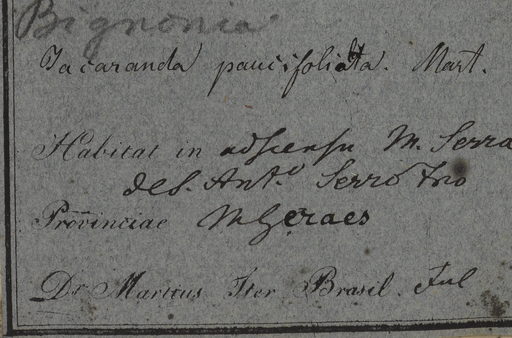 Bignonia
Jacaranda paucifoliata. Mart.
Habitat in adscensu M. Serra
de S. Ant.o Serro Frio
Provinciae MGeraes
Dr. Martius Iter Brasil. Jul